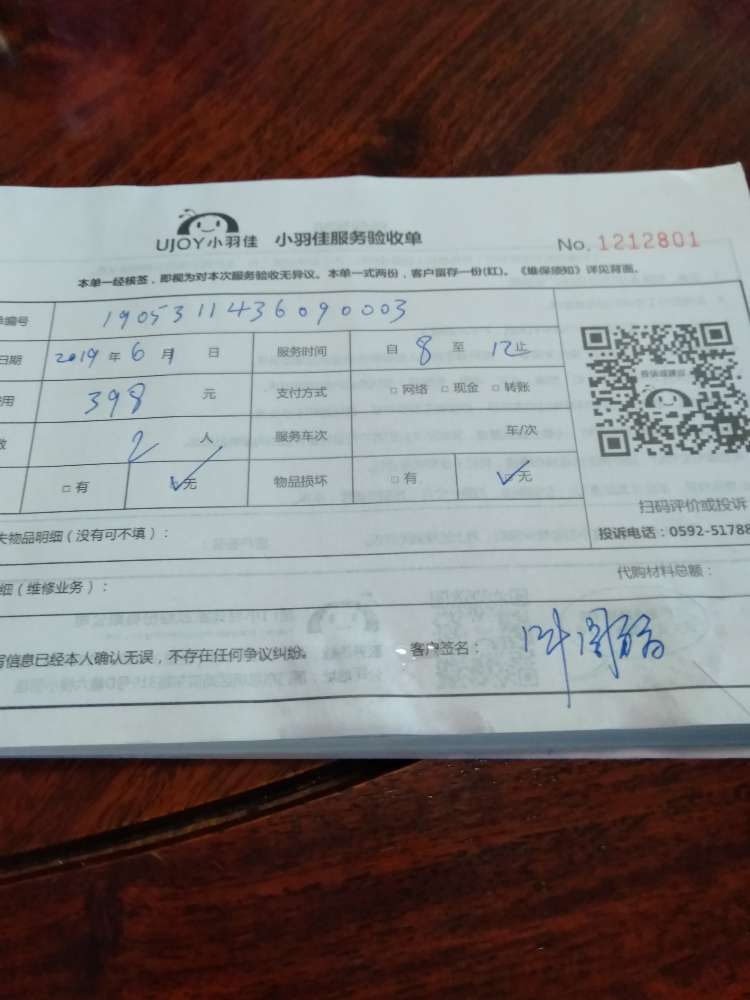 UJOY小羽佳 小羽佳服务验收单 No. 1212801
本单一经核签，即视为对本次服务验收无异议。本单一式两份，客户留存一份(红)。《维保须知》详见背面。
单编号 1905311436090003
日期 2019 年 6 月 1 日 服务时间 自 8 至 12 止
费用 398 元 支付方式 □ 网络 □ 现金 □ 转账
数 2 人 服务车次 车/次
□ 有 □ 无 物品损坏 □ 有 □ 无
投诉或建议
扫码评价或投诉
投诉电话：0592-51788
失物品明细（没有可不填）：
代购材料总额：
细（维修业务）：
写信息已经本人确认无误，不存在任何争议纠纷。 客户签名：